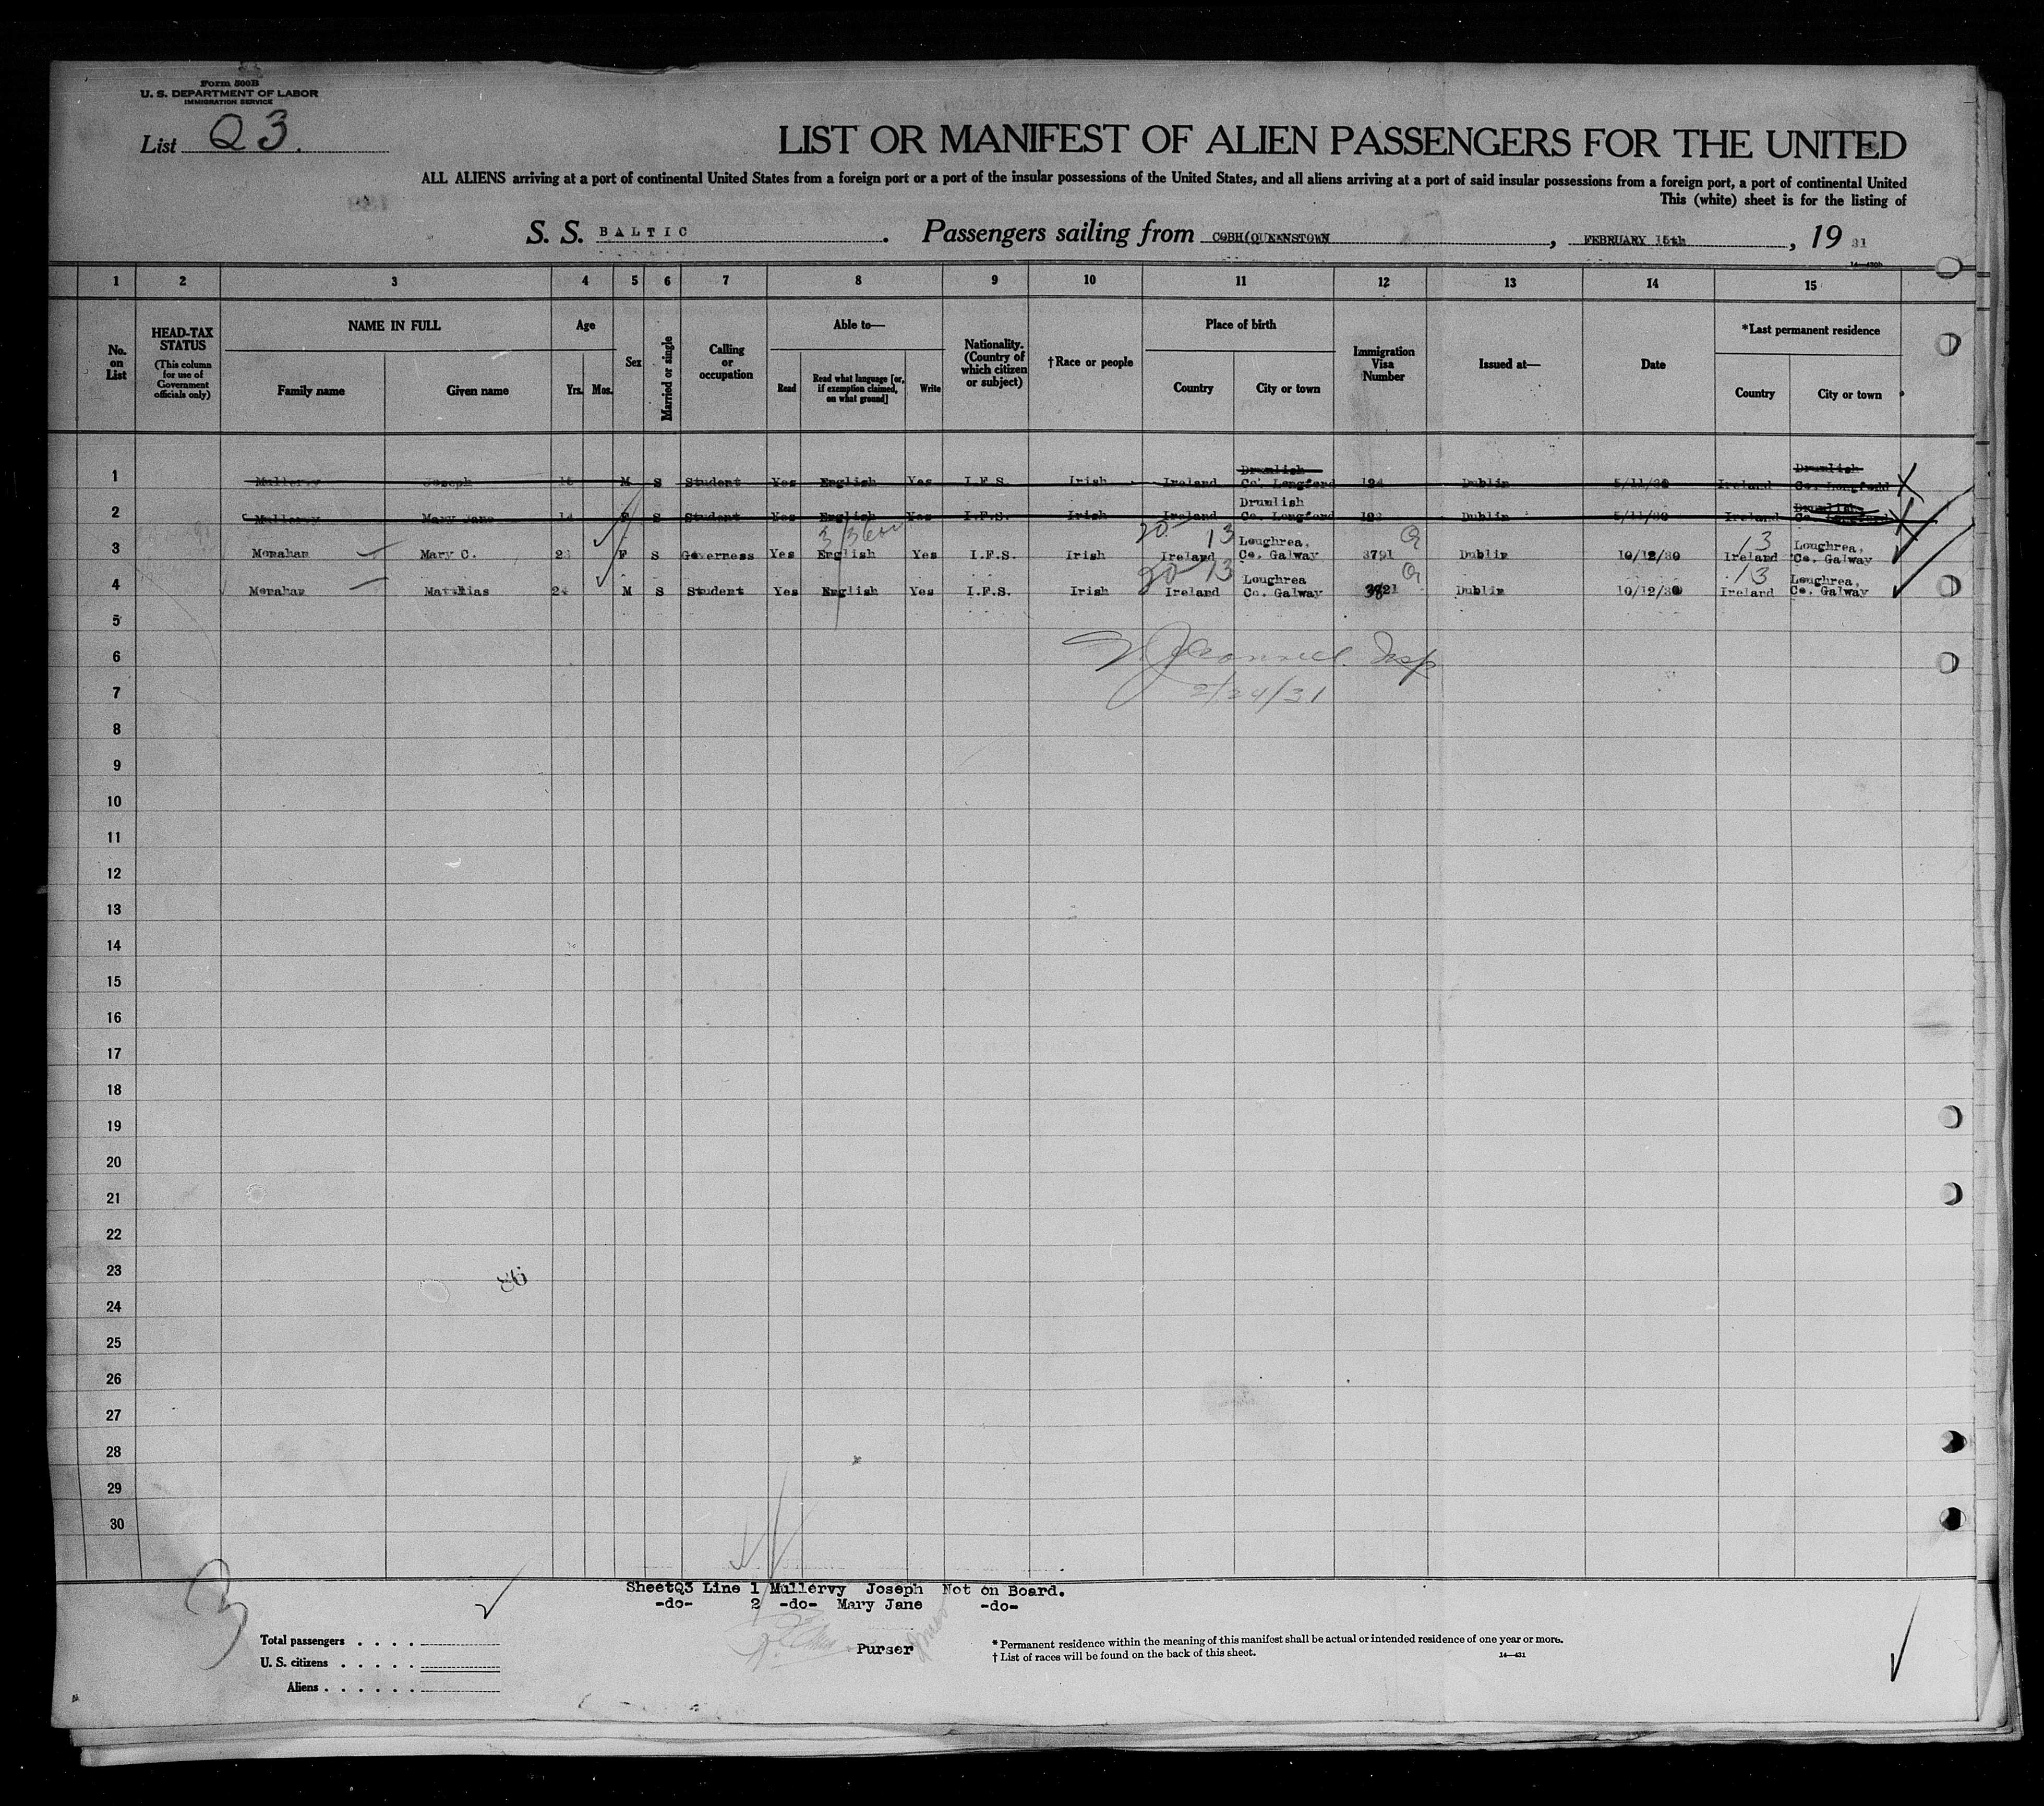 Form 500B
U. S. DEPARTMENT OF LABOR
IMMIGRATION SERVICE
List Q3.
LIST OR MANIFEST OF ALIEN PASSENGERS FOR THE UNITED
ALL ALIENS arriving at a port of continental United States from a foreign port or a port of the insular possessions of the United States, and all aliens arriving at a port of said insular possessions from a foreign port, a port of continental United
This (white) sheet is for the listing of
S. S. BALTIC. Passengers sailing from COBH(QUEENSTOWN, FEBRUARY 15th, 19 31
14—430b
1 2 3 4 5 6 7 8 9 10 11 12 13 14 15
No. on List
HEAD-TAX STATUS (This column for use of Government officials only)
NAME IN FULL
Family name
Given name
Age
Yrs.
Mos.
Sex
Married or single
Calling or occupation
Able to—
Read
Read what language [or, if exemption claimed, on what ground]
Write
Nationality. (Country of which citizen or subject)
†Race or people
Place of birth
Country
City or town
Immigration Visa Number
Issued at—
Date
*Last permanent residence
Country
City or town
1 Mullervy Joseph 15 M S Student Yes English Yes I.F.S. Irish Ireland Drumlish Co. Longford 124 Dublin 5/11/30 Ireland Drumlish Co. Longford X
2 Mullervy Mary Jane 14 F S Student Yes English Yes I.F.S. Irish Ireland Drumlish Co. Longford Dublin 5/11/30 Ireland Drumlish Co. Longford X
3/3600
20 13 Q 13
3 Monahan Mary C. F S Governess Yes English Yes I.F.S. Irish Ireland Loughrea, Co. Galway 3791 Dublin 10/12/30 Ireland Loughrea, Co. Galway
20 13 Q 13
4 Monahan Matthias 24 M S Student Yes English Yes I.F.S. Irish Ireland Loughrea Co. Galway Dublin 10/12/30 Ireland Loughrea, Co. Galway
5
6 Insp
7 2/24/31
8
9
10
11
12
13
14
15
16
17
18
19
20
21
22
23
24
25
26
27
28
29
30
SheetQ3 Line 1 Mullervy Joseph Not on Board.
-do- 2 -do- Mary Jane -do-
Purser
Total passengers . . . .
U. S. citizens . . . . .
Aliens . . . . . .
* Permanent residence within the meaning of this manifest shall be actual or intended residence of one year or more.
† List of races will be found on the back of this sheet.
14—431